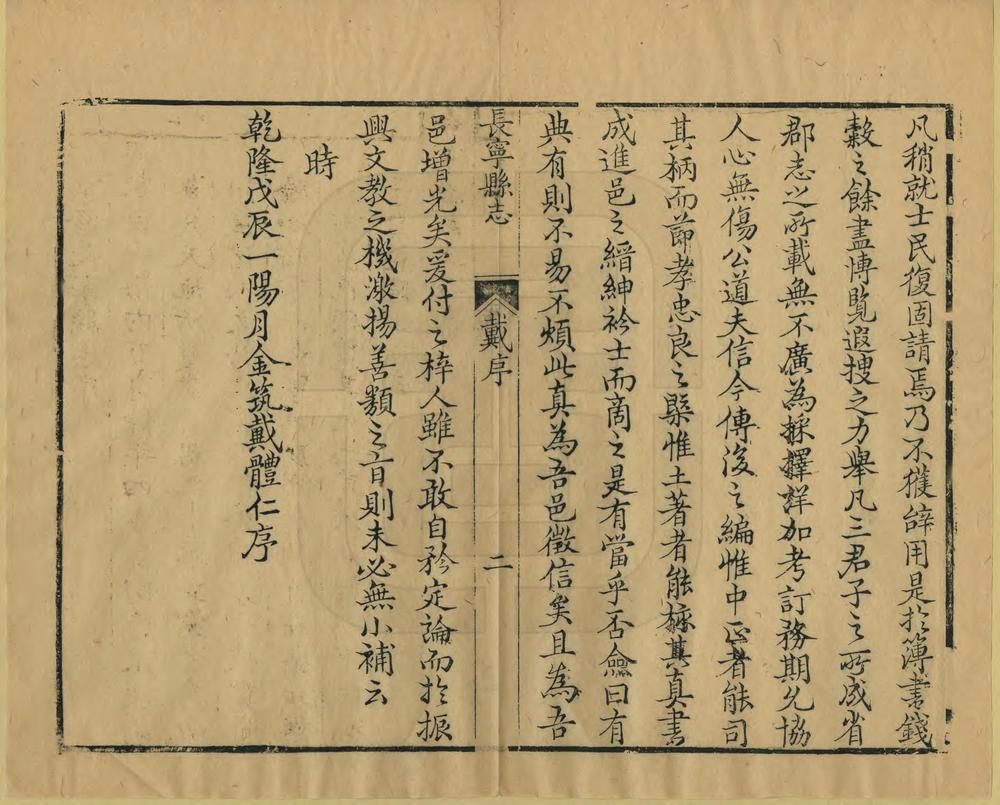 凡稍就士民復固請焉乃不獲辭用是於簿書錢
穀之餘盡博覧遐搜之力舉凡三君子之所成省
郡志之所載無不廣為採擇詳加考訂務期允協
人心無傷公道夫信今傳後之編惟中正者能司
其柄而節孝忠良之槩惟土著者能核其真書
成進邑之縉紳衿士而商之是有當乎否僉曰有
典有則不易不煩此真為吾邑徵信矣且為吾
長寧縣志
戴序
二
邑增光矣爰付之梓人雖不敢自矜定論而於振
興文教之機激揚善類之旨則未必無小補云
時
乾隆戊辰一陽月金筑戴體仁序